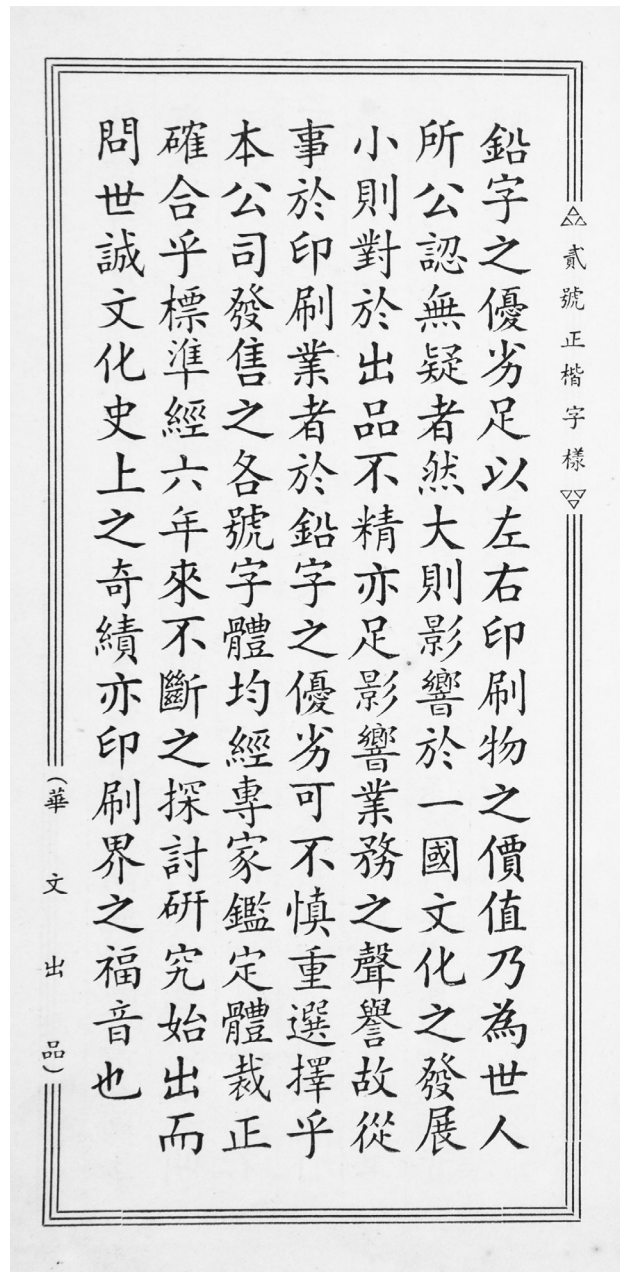 貳號正楷字樣
鉛字之優劣足以左右印刷物之價值乃為世人
所公認無疑者然大則影響於一國文化之發展
小則對於出品不精亦足影響業務之聲譽故從
事於印刷業者於鉛字之優劣可不慎重選擇乎
本公司發售之各號字體均經專家鑑定體裁正
確合乎標準經六年來不斷之探討研究始出而
問世誠文化史上之奇績亦印刷界之福音也
(華文出品)